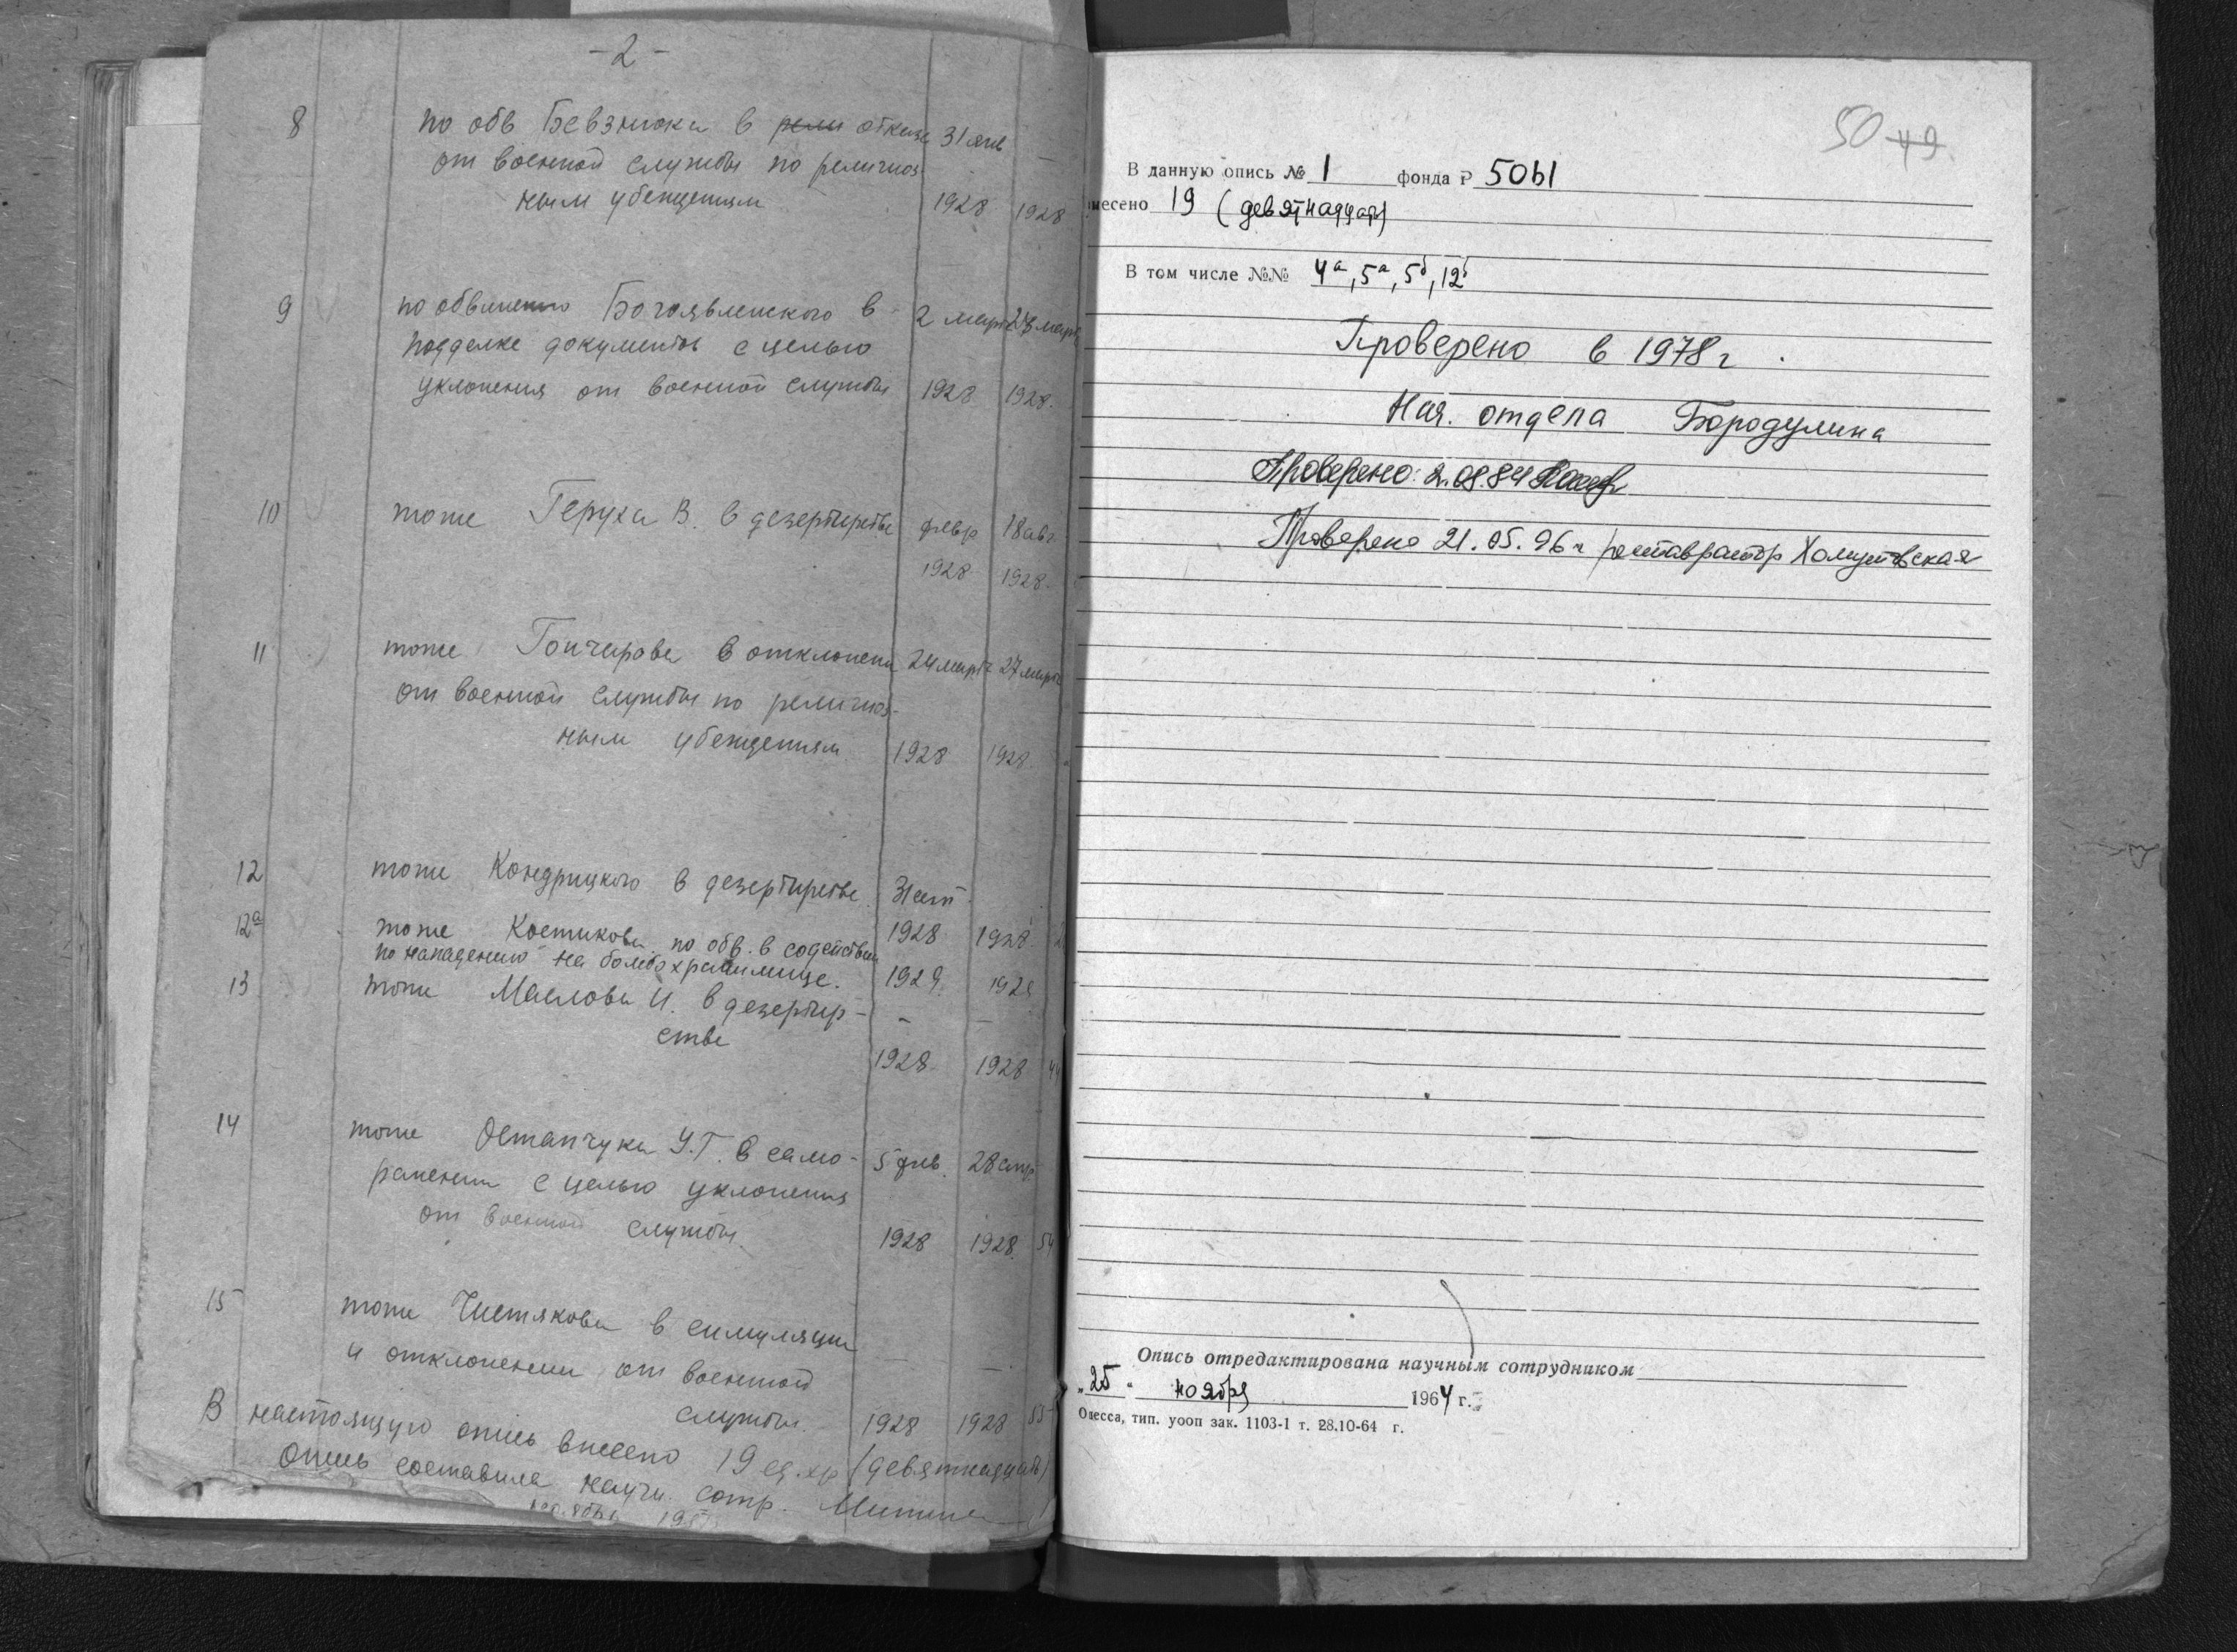 - 2 -
8 по обв Бевзнюка в рели отказе 31 янв —
от военной службы по религиоз-
ным убеждениям 1928 1928
9 по обвинению Богоявленского в 2 март 28 март
подделке документов с целью
уклонения от военной службы 1928 1928.
10 тоже Геруха В. в дезертирстве февр 18 авг
1928 1928
11 тоже Гончарова в отклонени 24 март 27 март
от военной службы по религиоз-
ным убеждениям 1928 1928.
12 тоже Кондрицкого в дезертирстве
1928 1928
12а тоже Костикова по обв. в содействии
по нападению на бомбохранилище. 1929 1929
13 тоже Маслова И. в дезертир- — —
стве
1928 1928 44
14 тоже Остапчука У.Г. в само- 5 фев. 28 апр
ранении с целью уклонения
от военной службы 1928 1928 54
15 тоже Чистякова в симуляции
и отклонении от военной —
службы. 1928 1928
В настоящую опись внесено 19 ед. хр (девятнадцать)
Опись составила научн. сотр.
50 49
В данную опись № 1 фонда Р 5061
несено 19 (девятнадцать)
В том числе №№ 4а, 5а, 5б, 12б
Проверено в 1978 г.
Нач. отдела Бородулина
Проверено: 2.08.84
Проверено 21.05.96 г реставратор Хомутовская
Опись отредактирована научным сотрудником
„25“ ноября 1964 г.
Одесса, тип. уооп зак. 1103-1 т. 28.10-64 г.